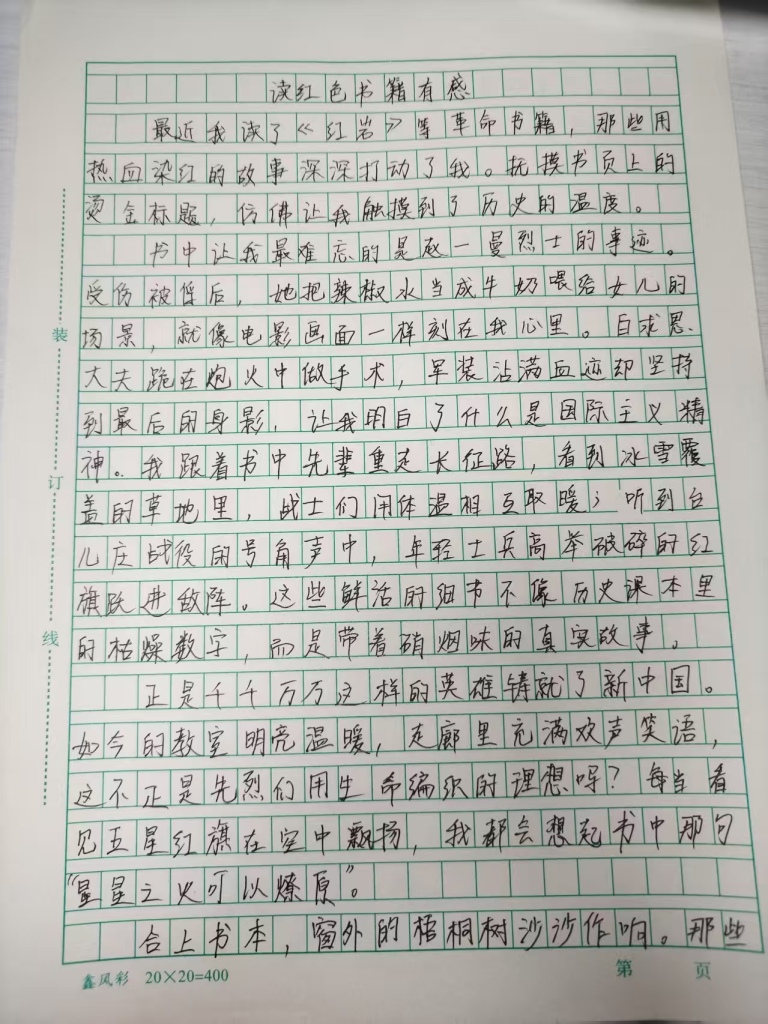 读红色书籍有感
最近我读了《红岩》等革命书籍，那些用
热血染红的故事深深打动了我。抚摸书页上的
烫金标题，仿佛让我触摸到了历史的温度。
书中让我最难忘的是赵一曼烈士的事迹。
受伤被俘后，她把辣椒水当成牛奶喂给女儿的
场景，就像电影画面一样刻在我心里。白求恩
大夫跪在炮火中做手术，军装沾满血迹却坚持
到最后的身影，让我明白了什么是国际主义精
神。我跟着书中先辈重走长征路，看到冰雪覆
盖的草地里，战士们用体温相互取暖；听到台
儿庄战役的号角声中，年轻士兵高举破碎的红
旗跃进敌阵。这些鲜活的细节不像历史课本里
的枯燥数字，而是带着硝烟味的真实故事。
正是千千万万这样的英雄铸就了新中国。
如今的教室明亮温暖，走廊里充满欢声笑语，
这不正是先烈们用生命编织的理想吗？每当看
见五星红旗在空中飘扬，我都会想起书中那句
“星星之火可以燎原”。
合上书本，窗外的梧桐树沙沙作响。那些
装
订
线
鑫风彩 20×20=400
第 页